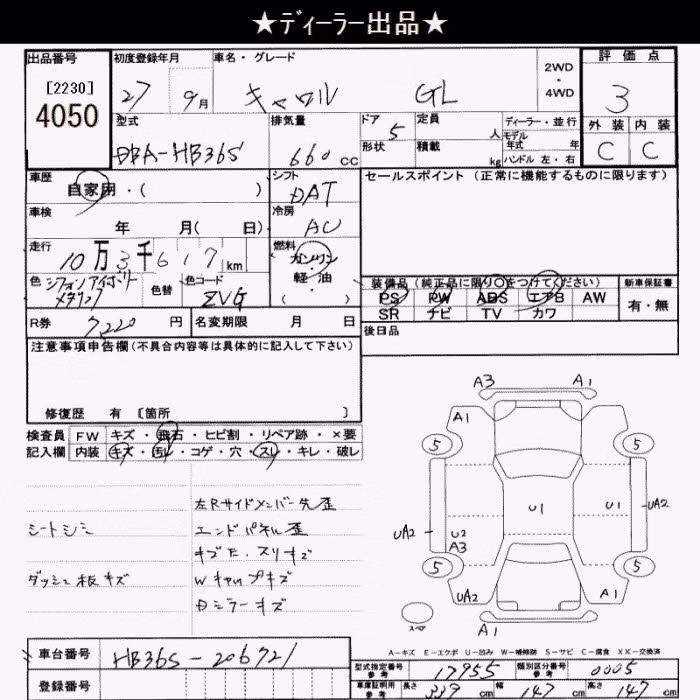 ★ディーラー出品★
出品番号
[2230]
4050
初度登録年月
27 9月
車名・グレード
キャロル GL
2WD
・
4WD
評価点
3
外装 内装
C C
型式
DBA-HB36S
排気量
660 cc
ドア 5
形状
定員 人
積載 kg
ディーラー・並行
モデル年式 年
ハンドル 左・右
車歴
自家用・( )
シフト
DAT
車検
年 月( 日)
冷房
AC
走行
10万3千617km
燃料
ガソリン
・
軽・油
( )
色
シフォンアイボリーメタリック
色替
色コード
ZVG
R券 7220 円
名変期限 月 日
セールスポイント (正常に機能するものに限ります)
装備品 (純正品に限り○をつけてください)
PS PW ABS エアB AW
SR ナビ TV カワ
新車保証書
有・無
後日品
注意事項申告欄(不具合内容等は具体的に記入して下さい)
修復歴 有 〔箇所 〕
検査員
記入欄
FW キズ・飛石・ヒビ割・リペア跡・×要
内装 キズ・汚レ・コゲ・穴・スレ・キレ・破レ
シートシミ
ダッシュ板キズ
左Rサイドメンバー先歪
エンドパネル歪
スリキズ
Wキャップキズ
Dミラーキズ
A3 A1
A1
5 5
U1
U1
UA2
UA2
U2
A3
5 5
UA2
A1
A1
スペア
A-キズ E-エクボ U-凹み W-補修跡 S-サビ C-腐食 XX-交換済
車台番号 HB36S-206721
登録番号
型式指定番号
参考
17955
類別区分番号
参考
0005
車庫証明用
参考
長さ 339 cm
幅 147 cm
高さ 147 cm